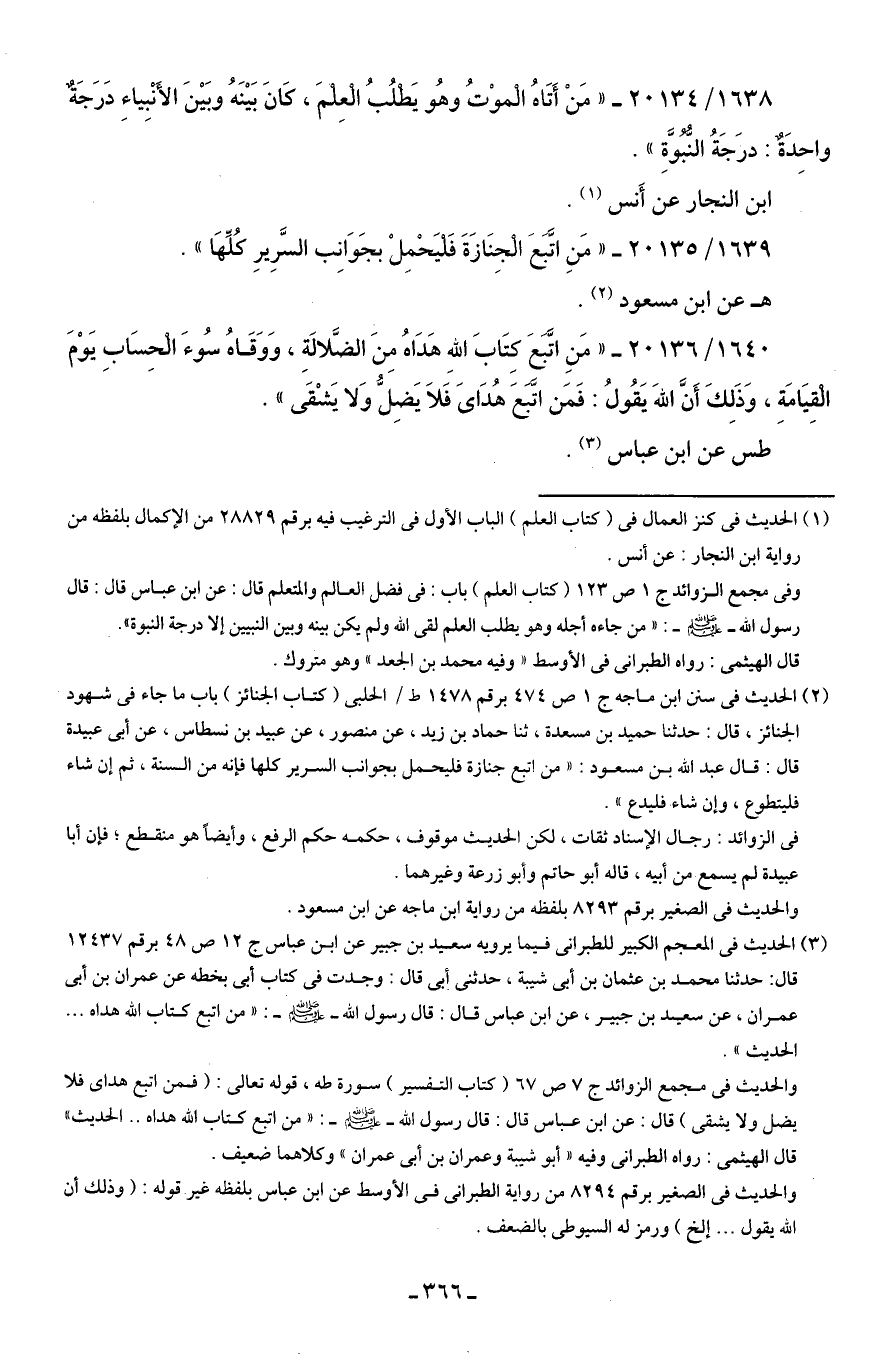 ١٦٣٨/ ٢٠١٣٤ ـ « مَنْ أَتَاهُ الْموْتُ وهُو يَطْلُبُ الْعِلْمَ ، كَانَ بَيْنَهُ وبَيْنَ الأَنْبِياءِ دَرَجَةٌ
واحِدَةٌ : درَجَةُ النُّبُوَّةِ » .
ابن النجار عن أَنس (١) .
١٦٣٩/ ٢٠١٣٥ ـ « مَنِ اتَّبَعَ الْجِنَازَةَ فَلْيَحْمِلْ بجَوَانب السَّرِيرِ كُلِّهَا » .
هـ عن ابن مسعود (٢) .
١٦٤٠/ ٢٠١٣٦ ـ « مَنِ اتَّبَعَ كِتَابَ اللهِ هَدَاهُ مِنَ الضَّلاَلَةِ ، وَوَقَـاهُ سُوءَ الْحِسَابِ يَوْمَ
الْقِيَامَةِ ، وَذَلِكَ أَنَّ اللهَ يَقُولُ : فَمَن اتَّبَعَ هُدَاىَ فَلاَ يَضِلُّ وَلا يَشْقَى » .
طس عن ابن عباس (٣) .
(١) الحديث فى كنز العمال فى ( كتاب العلم ) الباب الأول فى الترغيب فيه برقم ٢٨٨٢٩ من الإكمال بلفظه من
رواية ابن النجار : عن أنس .
وفى مجمع الـزوائد ج ١ ص ١٢٣ ( كتاب العلم ) باب : فى فضل العـالم والمتعلم قال : عن ابن عبـاس قال : قال
رسول الله ـ ﷺ ـ : « من جاءه أجله وهو يطلب العلم لقى الله ولم يكن بينه وبين النبيين إلا درجة النبوة».
قال الهيثمى : رواه الطبرانى فى الأوسط « وفيه محمد بن الجعد » وهو متروك .
(٢) الحديث فى سنن ابن مـاجه ج ١ ص ٤٧٤ برقم ١٤٧٨ ط / الحلبى ( كتـاب الجنائز ) باب ما جاء فى شـهود
الجنائز ، قال : حدثنا حميد بن مسعدة ، ثنا حماد بن زيد ، عن منصور ، عن عبيد بن نسطاس ، عن أبى عبيدة
قال : قـال عبد الله بـن مسعـود : « من اتبع جنازة فليحـمل بجوانب السـرير كلها فإنه من السنة ، ثم إن شاء
فليتطوع ، وإن شاء فليدع » .
فى الزوائد : رجـال الإسناد ثقات ، لكن الحديـث موقوف ، حكمـه حكم الرفع ، وأيضاً هو منقـطع ؛ فإن أبا
عبيدة لم يسمع من أبيه ، قاله أبو حاتم وأبو زرعة وغيرهما .
والحديث فى الصغير برقم ٨٢٩٣ بلفظه من رواية ابن ماجه عن ابن مسعود .
(٣) الحديث فى المعـجم الكبير للطبرانى فـيما يرويه سعيـد بن جبير عن ابـن عباس ج ١٢ ص ٤٨ برقم ١٢٤٣٧
قال: حدثنا محمـد بن عثمان بن أبى شيبة ، حدثنى أبى قال : وجـدت فى كتاب أبى بخطه عن عمران بن أبى
عمـران ، عن سعيـد بن جبيـر ، عن ابن عباس قـال : قال رسول الله ـ ﷺ ـ : « من اتبع كـتاب الله هداه ...
الحديث » .
والحديث فى مـجمع الزوائد ج ٧ ص ٦٧ ( كتاب التـفسير ) سـورة طه ، قوله تعالى : ( فـمن اتبع هداى فلا
يضل ولا يشقى ) قال : عن ابن عـباس قال : قال رسول الله ـ ﷺ ـ : « من اتبع كتاب الله هداه .. الحديث»
قال الهيثمى : رواه الطبرانى وفيه « أبو شيبة وعمران بن أبى عمران » وكلاهما ضعيف .
والحديث فى الصغير برقم ٨٢٩٤ من رواية الطبرانى فـى الأوسط عن ابن عباس بلفظه غير قوله : ( وذلك أن
الله يقول ... إلخ ) ورمز له السيوطى بالضعف .
ـ ٣٦٦ ـ